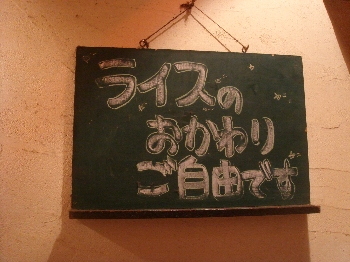 ライスの
おかわり
ご自由です